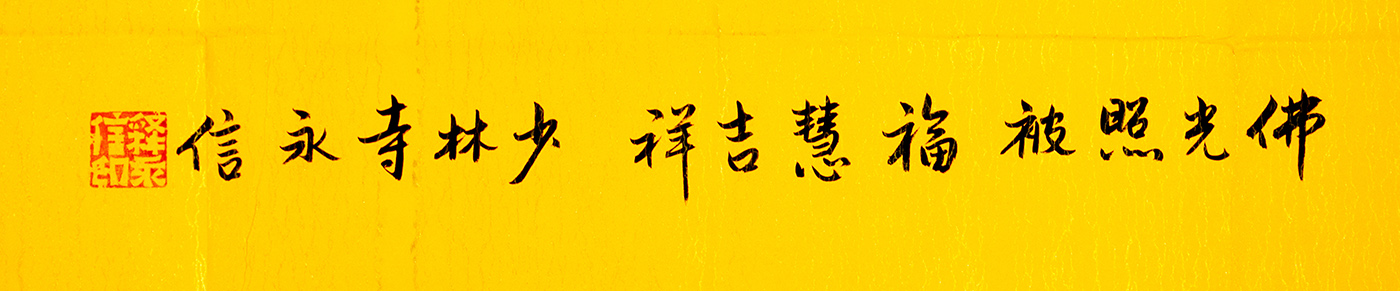 佛光照被 福慧吉祥 少林寺永信
釋永信印